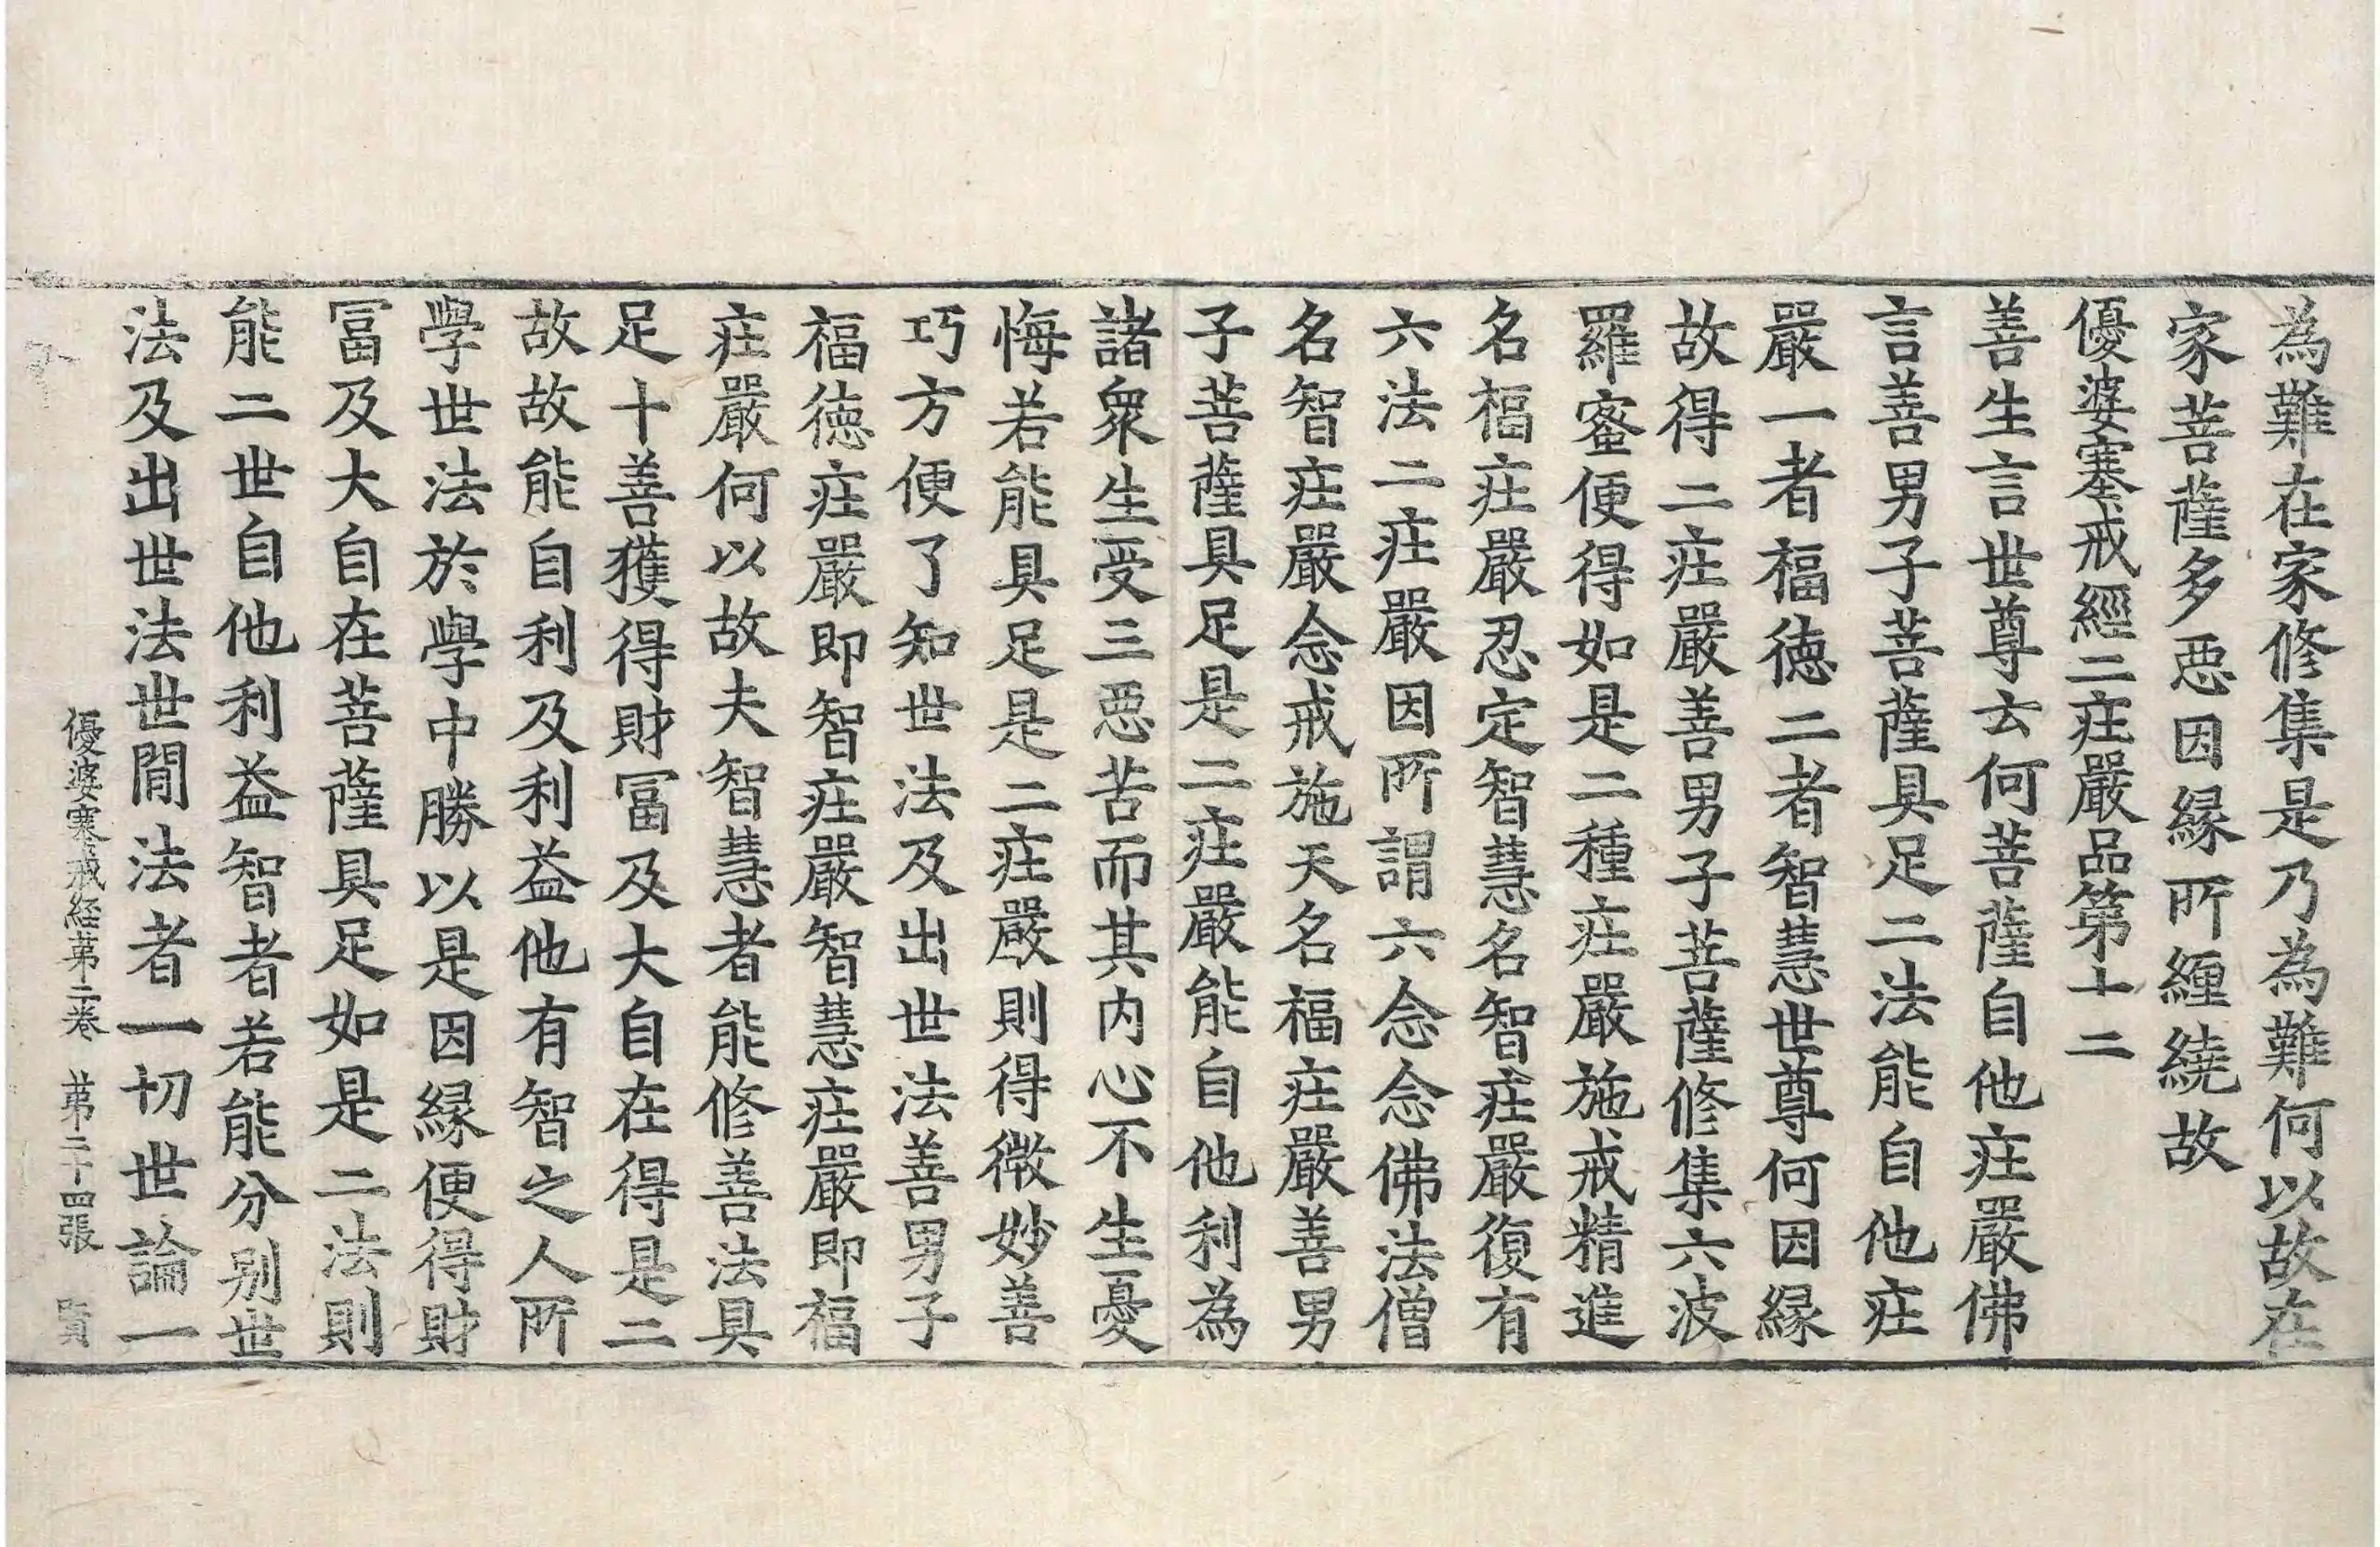 為難在家修集是乃為難何以故在
家菩薩多惡因緣所纏繞故
優婆塞戒經二庄嚴品第十二
善生言世尊云何菩薩自他庄嚴佛
言善男子菩薩具足二法能自他庄
嚴一者福徳二者智慧世尊何因緣
故得二庄嚴善男子菩薩修集六波
羅蜜便得如是二種庄嚴施戒精進
名福庄嚴忍定智慧名智庄嚴復有
六法二庄嚴因所謂六念念佛法僧
名智庄嚴念戒施天名福庄嚴善男
子菩薩具足是二庄嚴能自他利為
諸衆生受三惡苦而其内心不生憂
悔若能具足是二庄嚴則得微妙善
巧方便了知世法及出世法善男子
福徳庄嚴即智庄嚴智慧庄嚴即福
庄嚴何以故夫智慧者能修善法具
足十善獲得財冨及大自在得是二
故故能自利及利益他有智之人所
學世法於學中勝以是因緣便得財
冨及大自在菩薩具足如是二法則
能二世自他利益智者若能分别世
法及出世法世間法者一切世論一
優婆塞戒経苐二巻 苐二十四張 賢